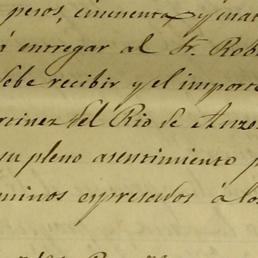 pesos, cincuenta y cuat
á entregar al Sr. Rob
debe recibir y el importe
rtinez del Rio de Anzo
su pleno asentimiento p
minos espresados á los